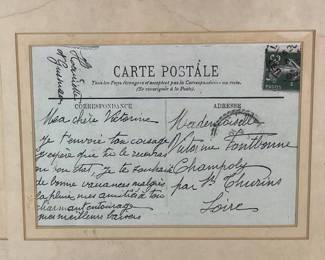 CARTE POSTALE
Tous les Pays étrangers n'acceptent pas la Correspondance au recto.
(Se renseigner à la Poste)
CORRESPONDANCE
Ma chère Victorine
je t'envoie ton corsage
j'espère que tu le recevras
en bon état, Je te souhaite
de bonne vacances malgré
la pluie, mes amitiés à ton
charmant entourage
mes meilleurs baisers
ADRESSE
Mademoiselle
Victorine Fontbonne
Champoly
par St Thurins
Loire